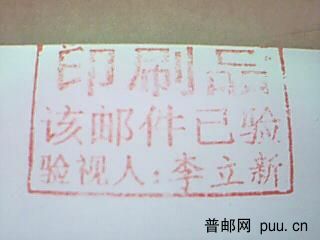 印刷品
该邮件已验
验视人：李立新
普邮网 puu.cn